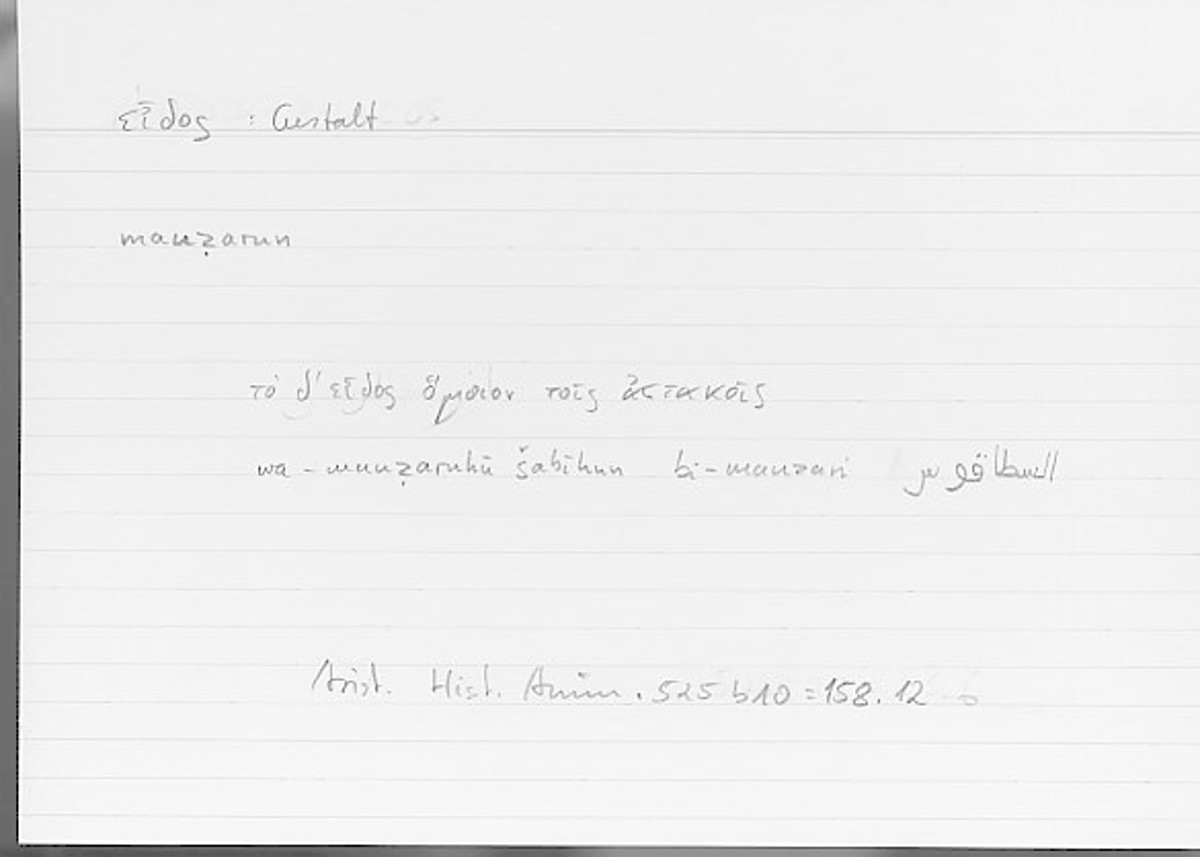 εἶδος : Gestalt
manẓarun
τὸ δ' εἶδος ὅμοιον τοῖς ἀστακοῖς
wa-manẓaruhū šabīhun bi-manzari السطاقوس
Arist. Hist. Anim. 525 b10 = 158.12